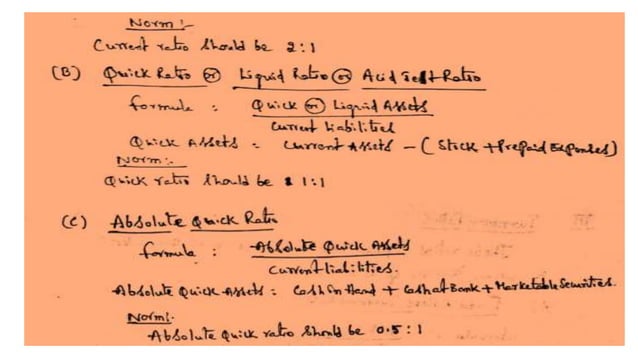 Norm :-
Current ratio should be 2:1
(B) Quick Ratio or Liquid Ratio or Acid Test Ratio
formula : Quick or Liquid Assets
Current Liabilities
Quick Assets = Current Assets - (Stock + Prepaid Expenses)
Norm :-
Quick ratio should be 1:1
(C) Absolute Quick Ratio
formula : Absolute Quick Assets
Current liabilities.
Absolute Quick Assets = Cash in Hand + Cash at Bank + Marketable Securities.
Norm:-
Absolute Quick ratio should be 0.5 : 1